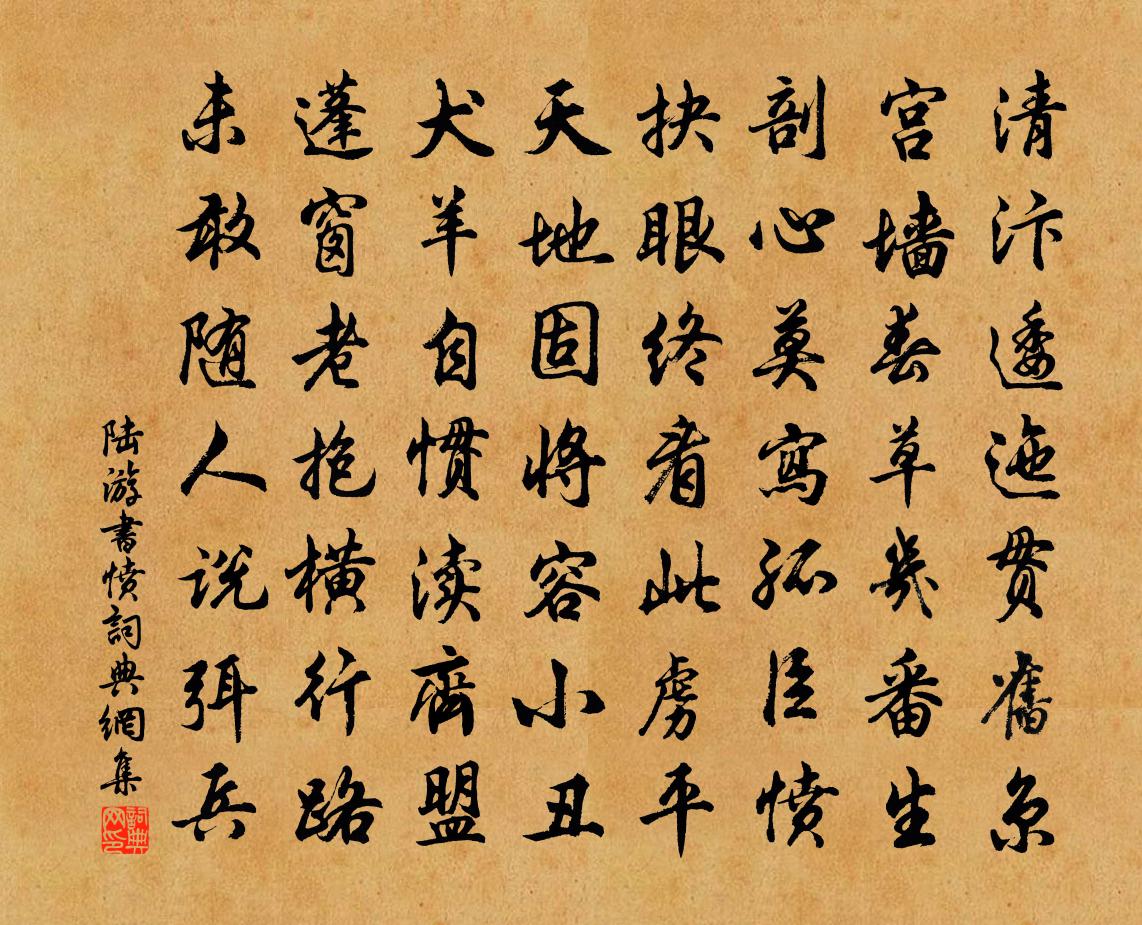 清汴逶迤贯舊京
宫墙春草幾番生
剖心莫寫孤臣愤
抉眼终看此虏平
天地固将容小丑
犬羊自惯渎齊盟
蓬窗老抱横行路
未敢随人说弭兵
陆游書愤詞典網集
詞典网印